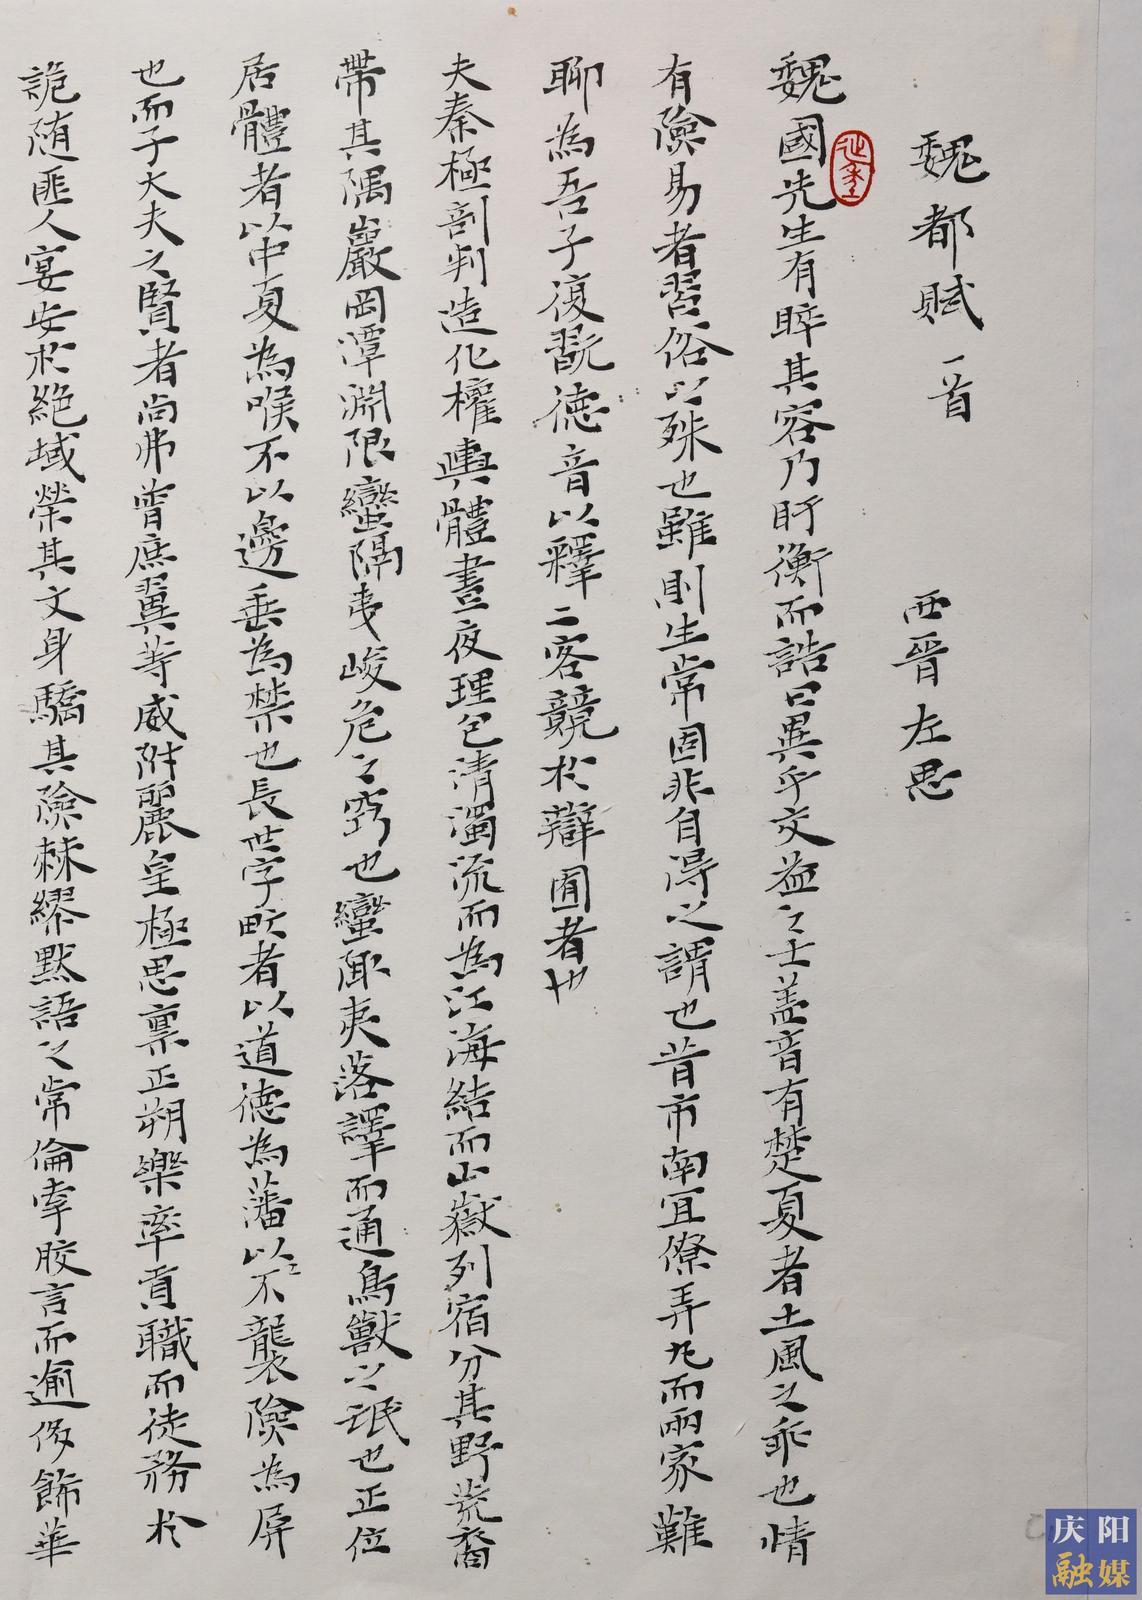 魏都賦一首 西晉左思
魏國先生有睟其容乃盱衡而誥曰異乎交益之士蓋音有楚夏者土風之乖也情
有險易者習俗以殊也雖則生常固非自得之謂也昔市南宜僚弄丸而兩家難
聊為吾子復翫德音以釋二客競於辯囿者也
夫泰極剖判造化權輿體晝夜理包清濁流而為江海結而山嶽列宿分其野荒裔
帶其隅巖岡潭淵限蠻隔夷峻危之竅也蠻陬夷落譯而通鳥獸之氓也正位
居體者以中夏為喉不以邊垂為禁也長世字甿者以道德為藩以不襲險為屏
也而子大夫之賢者尚弗曾庶翼等威附麗皇極思稟正朔樂率貢職而徒務於
詭随匪人宴安於絕域榮其文身驕其險棘繆默語之常倫牽膠言而逾侈飾華
庆阳
融媒